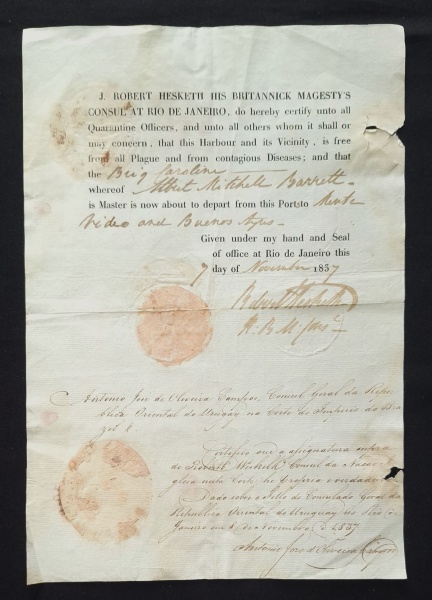 J. ROBERT HESKETH HIS BRITANNICK MAGESTY'S
CONSUL AT RIO DE JANEIRO, do hereby certify unto all
Quarantine Officers, and unto all others whom it shall or
may concern, that this Harbour and its Vicinity, is free
from all Plague and from contagious Diseases; and that
the Brig Caroline
whereof Albert Mitchell Barrett
is Master is now about to depart from this Portsto Monte
Video and Buenos Ayres
Given under my hand and Seal
of office at Rio de Janeiro this
7 day of November 1837
Robert Hesketh
H. B. M. Cons
Antonio Joze de Oliveira Campos, Consul Geral da Repu
blica Oriental do Uruguay na Corte do Imperio do Bra
zil &
Certifico que a assignatura
de Robert Hesketh, Consul da Nação
gleza nesta Corte, he propria e verdadeira
Dado sobre o Sello do Consulado Geral da
Republica Oriental do Uruguay no Rio de
Janeiro em de Novembro de 1837
Antonio Joze d'Oliveira Campos